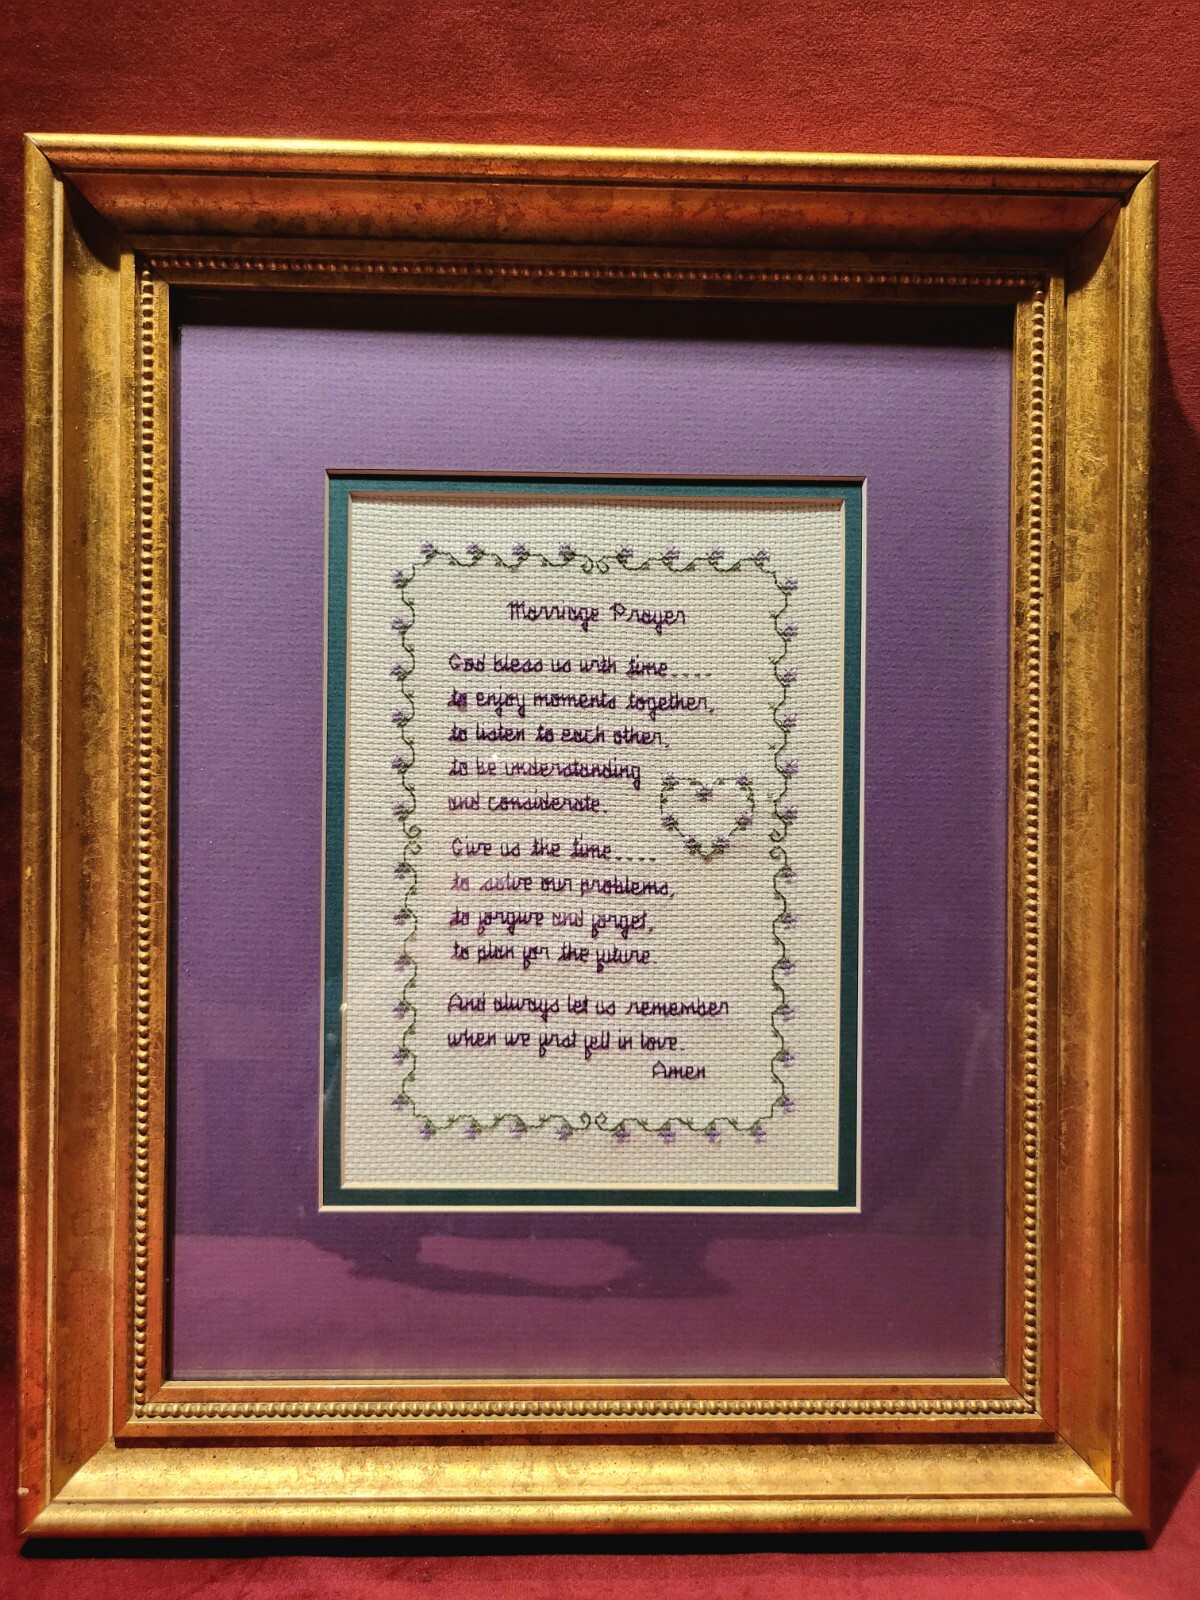 Marriage Prayer
God bless us with time....
to enjoy moments together,
to listen to each other,
to be understanding
and considerate.
Give us the time....
to solve our problems,
to forgive and forget,
to plan for the future.
And always let us remember
when we first fell in love.
Amen